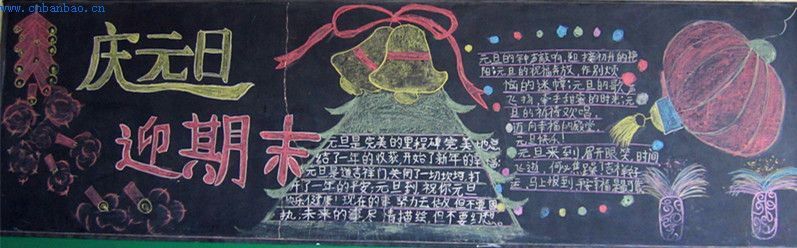 www.cnbanbao.cn
庆元日
迎期末
元旦是完美的里程碑完美地总
结了一年的收获开始了新年的
元旦是道吉祥门关闭了一切坎坷打
开了一年的平安元旦到祝你元旦
快乐健康！现在的事努力去做但不要
执未来的事尽情描绘但不要幻想
元旦的钟声敲响，迎接初升的艳
阳；元旦的祝福奔放，作别烦
恼的迷惘；元旦的歌声
飞扬，牵手甜蜜的时光；元
旦的祈祷欢唱，
迈向幸福的殿堂。
元旦快乐！
元旦来到眉开眼笑，时间
飞逝